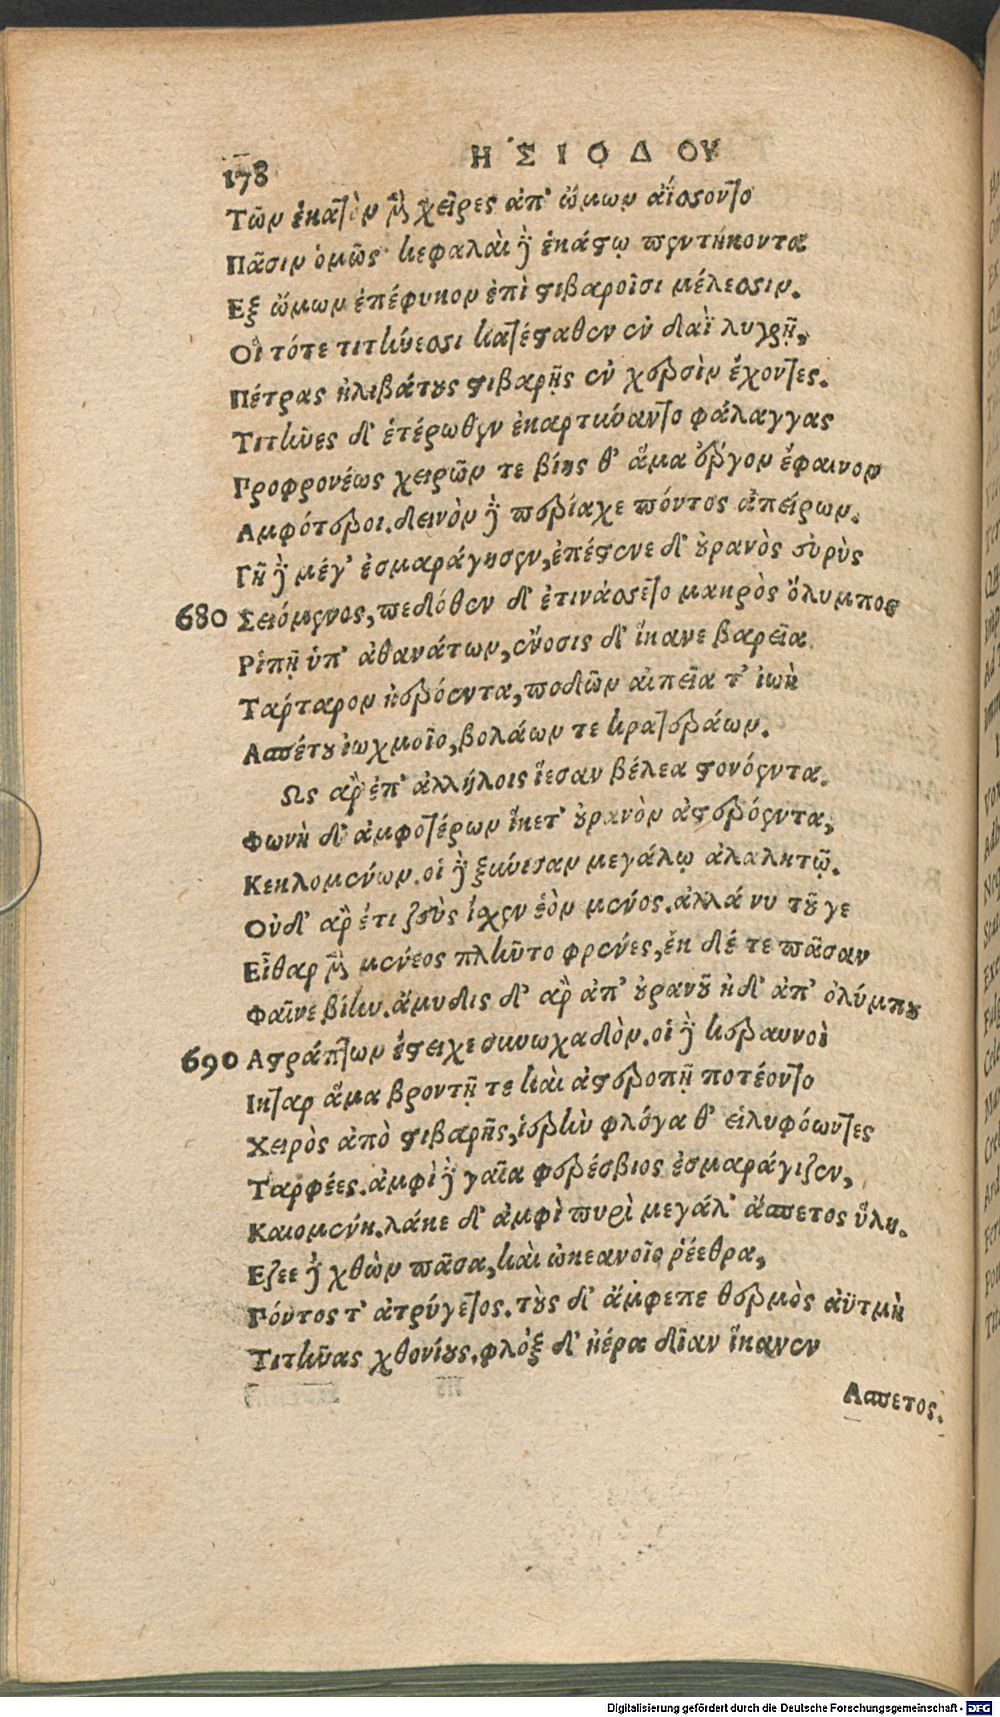 178
ΗΣΙΟΔΟΥ
Τῶν ἑκατὸν μὲν χεῖρες ἀπ' ὤμων ἀΐσσοντο
Πᾶσιν ὁμῶς· κεφαλαὶ δὲ ἑκάστῳ πεντήκοντα
Εξ ὤμων ἐπέφυκον ἐπὶ στιβαροῖσι μέλεσσιν.
Οἳ τότε τιτήνεσσι κατέσταθεν ἐν δαῒ λυγρῇ,
Πέτρας ἠλιβάτους στιβαρῇς ἐν χερσὶν ἔχοντες.
Τιτῆνες δ' ἑτέρωθεν ἐκαρτύναντο φάλαγγας
Προφρονέως χειρῶν τε βίης θ' ἅμα ἔργον ἔφαινον
Αμφότεροι. δεινὸν δὲ περίαχε πόντος ἀπείρων.
Γῆ δὲ μέγ' ἐσμαράγησεν, ἐπέστενε δ' οὐρανὸς εὐρὺς
680 Σειόμενος, πεδόθεν δ' ἐτινάσσετο μακρὸς ὄλυμπος
Ριπῇ ὑπ' ἀθανάτων, ἔνοσις δ' ἵκανε βαρεῖα
Ταρταρον ἠερόεντα, ποδῶν αἰπεῖα τ' ἰωὴ
Ασπέτου ἰωχμοῖο, βολάων τε κρατεράων.
Ως ἄρ' ἐπ' ἀλλήλοις ἵεσαν βέλεα στονόεντα.
Φωνὴ δ' ἀμφοτέρων ἵκετ' οὐρανὸν ἀστερόεντα,
Κεκλομένων. οἱ δὲ ξύνισαν μεγάλῳ ἀλαλητῷ.
Οὐδ' ἄρ' ἔτι ζεὺς ἴσχεν ἑὸν μένος. ἀλλά νυ τοῦ γε
Εἶθαρ μὲν μένεος πλῆντο φρένες, ἐκ δέ τε πᾶσαν
Φαῖνε βίην. ἄμυδις δ' ἄρ' ἀπ' οὐρανοῦ ἠδ' ἀπ' ὀλύμπου
690 Αστράπτων ἔστειχε συνωχαδὸν. οἱ δὲ κεραυνοὶ
Ικταρ ἅμα βροντῇ τε καὶ ἀστεροπῇ ποτέοντο
Χειρὸς ἀπὸ στιβαρῆς, ἱερὴν φλόγα θ' εἰλυφόωντες
Ταρφέες. ἀμφὶ δὲ γαῖα φερέσβιος ἐσμαράγιζεν,
Καιομένη. λάκε δ' ἀμφὶ πυρὶ μεγάλ' ἄσπετος ὕλη.
Εζεε δὲ χθὼν πᾶσα, καὶ ὠκεανοῖο ῥέεθρα,
Πόντος τ' ἀτρύγετος. τοὺς δ' ἄμφεπε θερμὸς ἀϋτμὴ
Τιτῆνας χθονίους. φλὸξ δ' ἠέρα δῖαν ἵκανεν
Ασπετος.
Digitalisierung gefördert durch die Deutsche Forschungsgemeinschaft - DFG